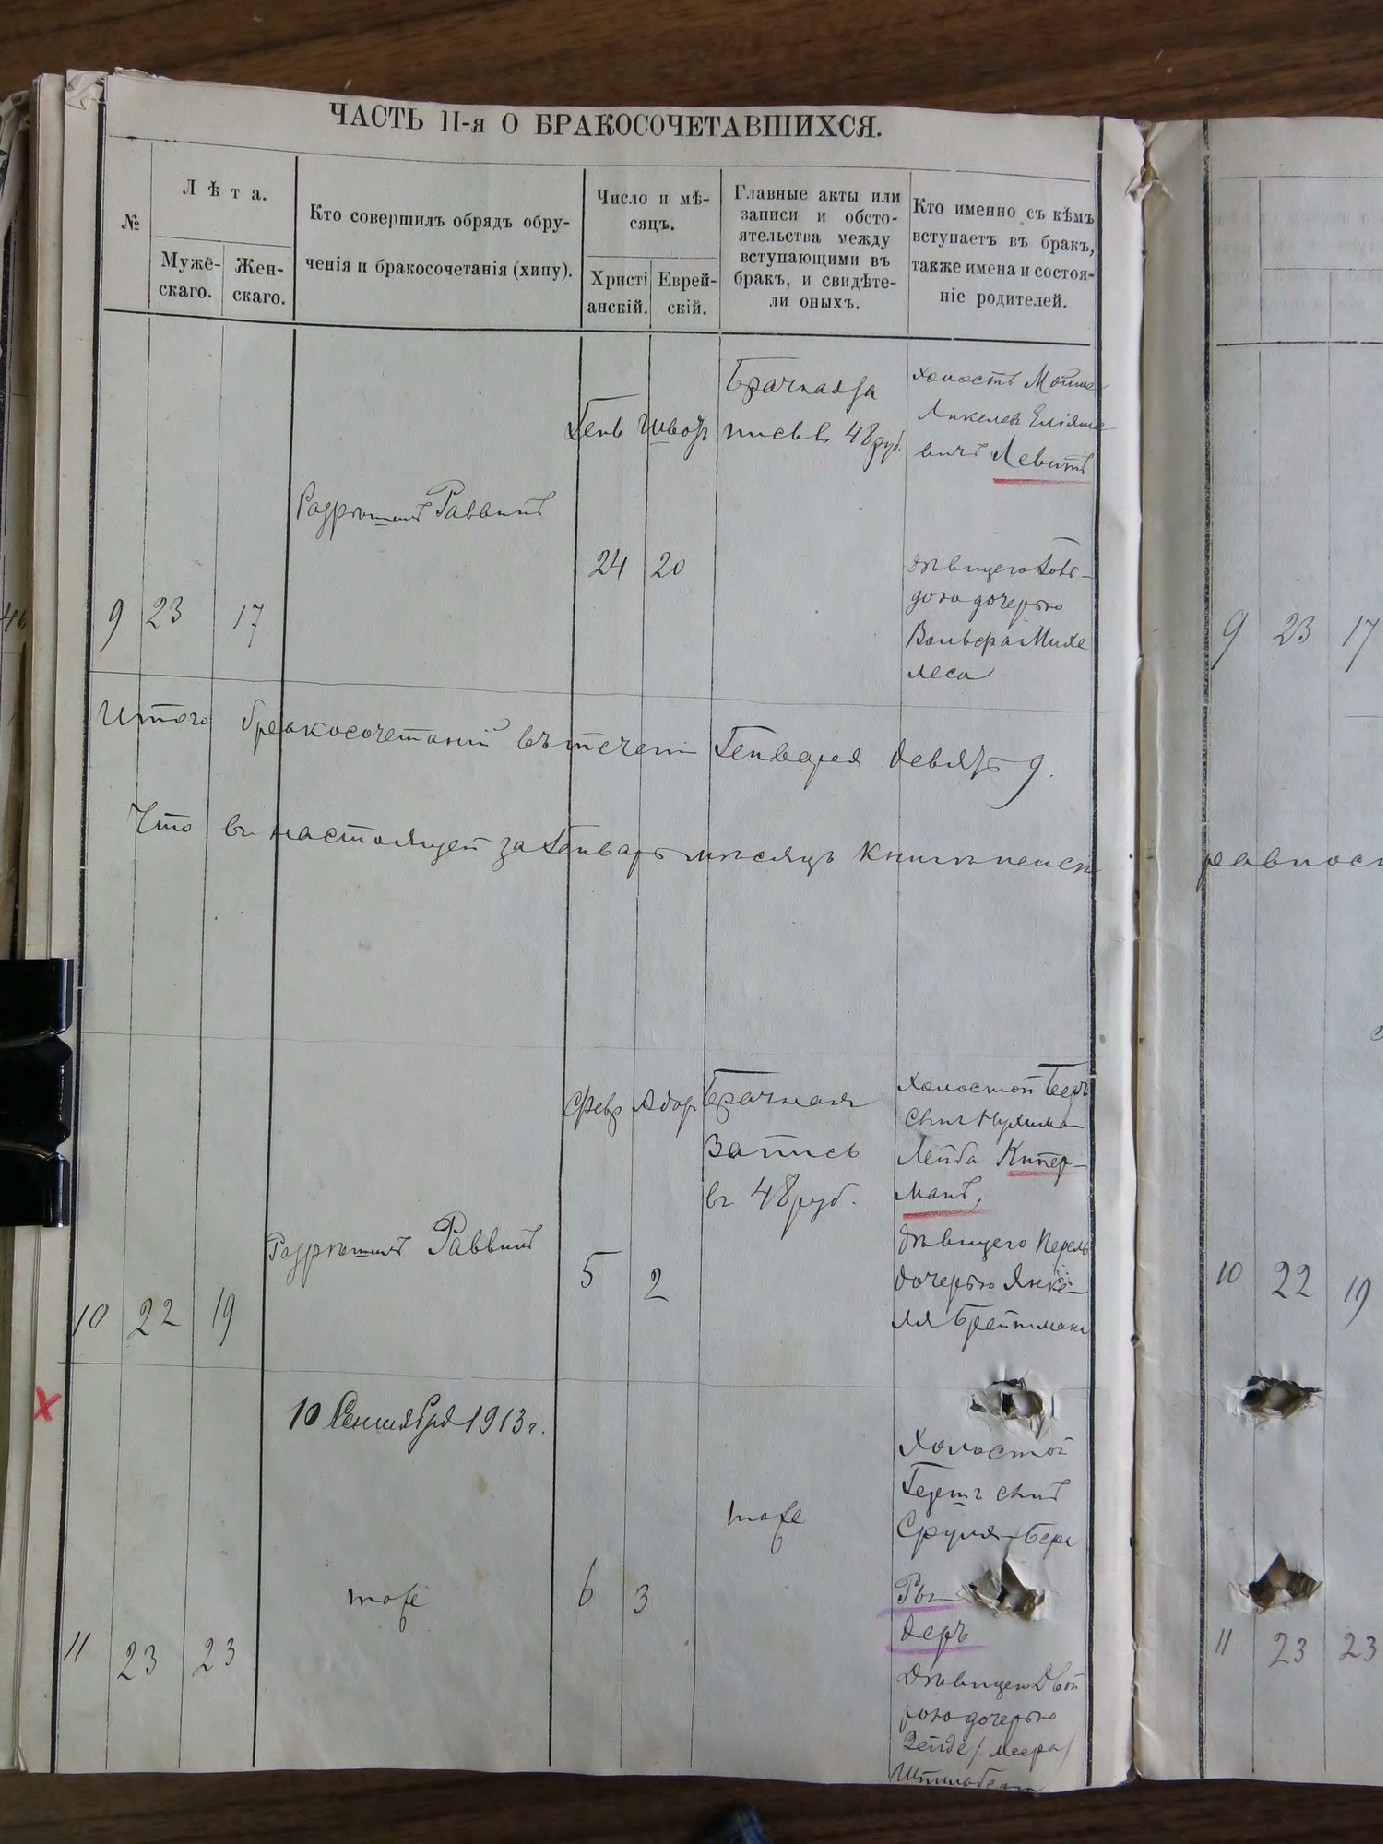 ЧАСТЬ II-я О БРАКОСОЧЕТАВШИХСЯ.
№
Лѣта.
Мужескаго.
Женскаго.
Кто совершилъ обрядъ обру-
ченія и бракосочетанія (хипу).
Число и мѣ-
сяцъ.
Христі
анскій.
Еврей-
скій.
Главные акты или
записи и обсто-
ятельства между
вступающими въ
бракъ, и свидѣте-
ли оныхъ.
Кто именно съ кѣмъ
вступаетъ въ бракъ,
также имена и состоя-
ніе родителей.
9
23
17
Раввинъ
Генв
24
20
Брачная за
пись в 48 руб.
холостъ
вичъ Левитъ
дѣвицею
дочерью
Итого бракосочетаній въ течені Генваря девять 9.
Что въ настоящей за Генварь мѣсяцъ книгѣ
10
22
19
Раввинъ
Февр
5
Адар
2
Брачная
запись
въ 48 руб.
Холостой Беръ
сынъ Нухима
Лейба Кипер-
манъ,
дѣвицею Перель
дочерью Янке-
ля Брейтмана
11
23
23
10 Сентября 1913 г.
тоже
6
3
тоже
Холостой
сынъ
Сруля-Бера
деръ
Дѣвицею Двой
рою дочерью
Зейде / Меера /
9
23
17
10
22
19
11
23
23